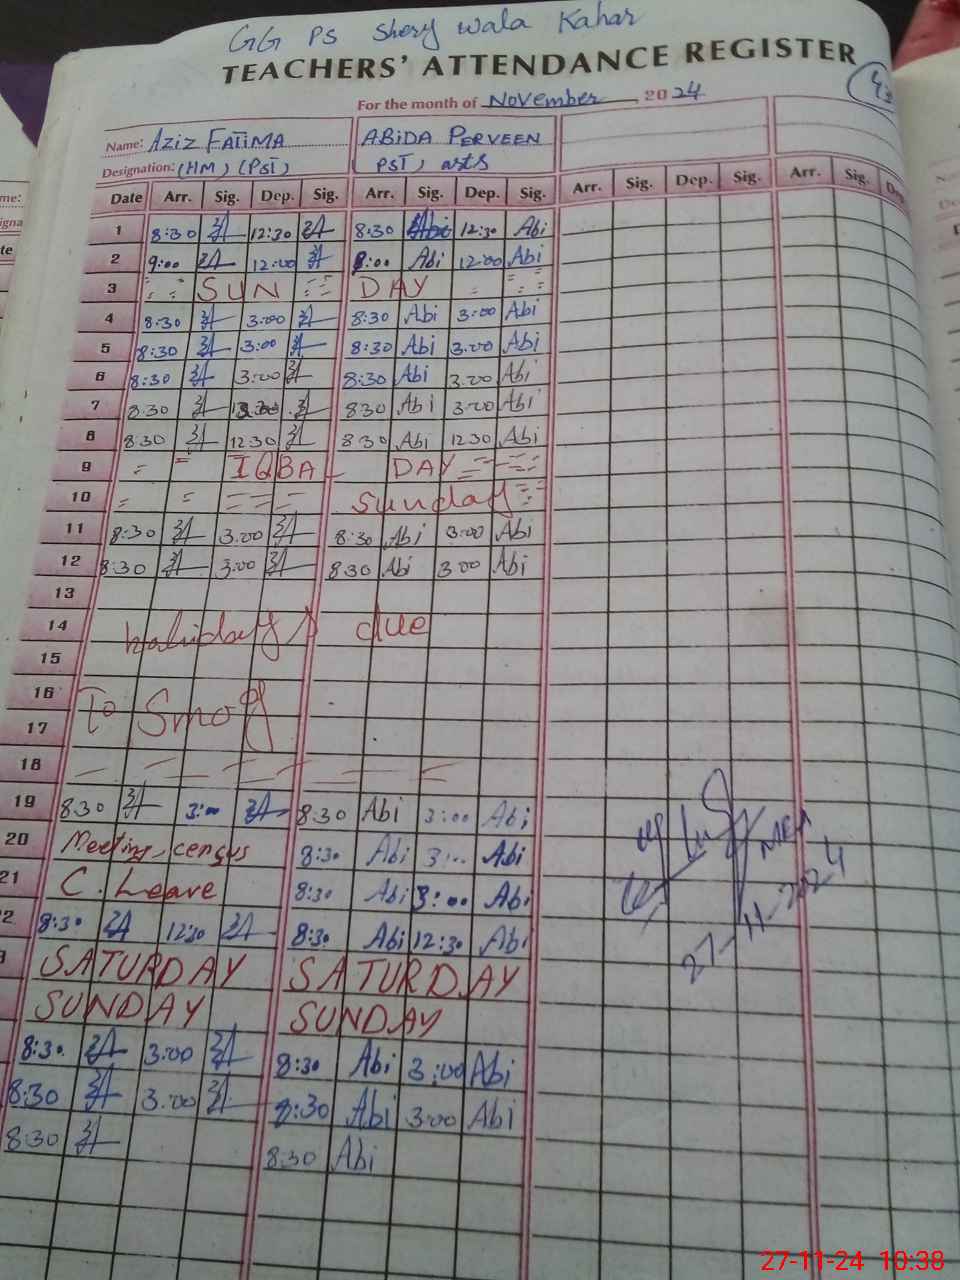 GG PS Shery Wala Kahar
TEACHERS' ATTENDANCE REGISTER
For the month of November 2024
Name: AZIZ FATIMA ABIDA PERVEEN
Designation: (HM) (PST) PST, arts
Date Arr. Sig. Dep. Sig. Arr. Sig. Dep. Sig. Arr. Sig. Dep. Sig. Arr. Sig.
1 8:30 12:30 8:30 Abi 12:30 Abi
2 9:00 12:00 9:00 Abi 12:00 Abi
3 SUN DAY
4 8:30 3:00 8:30 Abi 3:00 Abi
5 8:30 3:00 8:30 Abi 3.00 Abi
6 8:30 3:00 8:30 Abi 3.00 Abi
7 8:30 8:30 Abi 3:00 Abi
8 8:30 12 30 8:30 Abi 12 30 Abi
9 IQBAL DAY
10 Sunday
11 8:30 3.00 8:30 Abi 3:00 Abi
12 8:30 3:00 8 30 Abi 3 00 Abi
13
14 holidays due
15
16
17 To Smog
18
19 8 30 3:00 8:30 Abi 3:00 Abi
20 Meeting census 8:30 Abi 3:00 Abi
21 C. Leave 8:30 Abi 3:00 Abi
2 8:30 12:30 8:30 Abi 12:30 Abi
SATURDAY SATURDAY
SUNDAY SUNDAY
8:30 3:00 8:30 Abi 3:00 Abi
8:30 3:00 8:30 Abi 3:00 Abi
8:30 8:30 Abi
27-11-2024
27-11-24 10:38